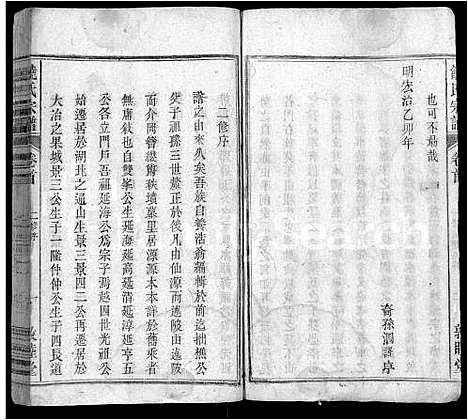 饒氏宗譜
卷首
也可不勗哉
明宏治乙卯年
裔孫泗謹序
敦睦堂
二修序
譜之由來久矣吾族自養浩翁輯於前迄拙樵公
父子祖孫三世釐正於後凡由仙源而遷陂由遠陂
而介岡爵秩墳墓里居源源木本詳於舊乘者
無庸敘也自雙峯公生延海延高延清延亨五
公各立門戶吾祖延海公為宗子焉越四世光祖公
始遷居於湖北之通山生景三景四二公再遷於
大冶之果城景三公生子一隆仲仲公生子四長道
饒氏宗譜
卷首
二修序
一
敦睦堂